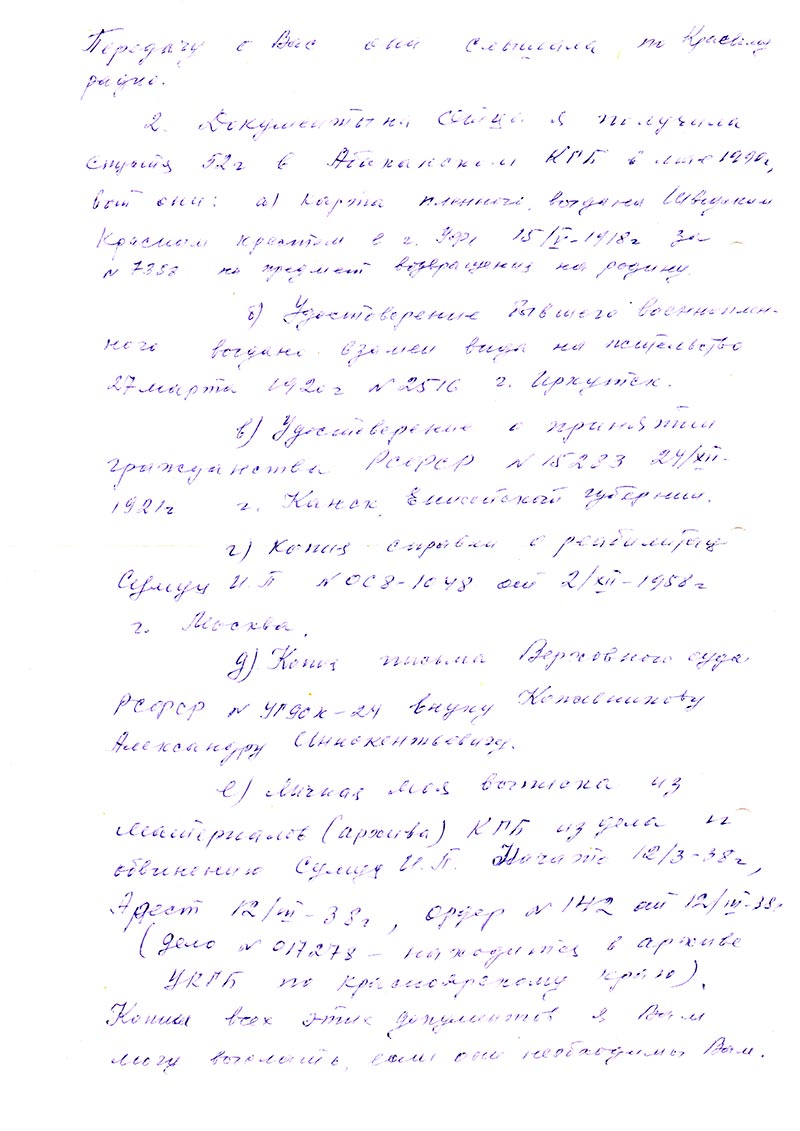 Передачу о Вас она слышала по Краевому
радио.
2. Документы на отца я получила
спустя 52г в Абаканском КГБ в мае 1990г,
вот они: а) Карта пленного, выдана Шведским
Красным крестом в г. Уфе 15/V-1918г за
№ 7358 на предмет возвращения на родину.
б) Удостоверение бывшего военноплен-
ного выдано взамен вида на жительство
27 марта 1920г №2516 г. Иркутск.
в) Удостоверение о принятии
гражданства РСФСР №15233 24/XII-
1921г г. Канск, Енисейской губернии.
г) Копия справки о реабилитац
И.П №ОС8-1048 от 2/XII-1958г
г. Москва.
д) Копия письма Верховного суда
РСФСР № внуку Кожевникову
Александру Иннокентьевичу.
е) Личная моя выписка из
материалов (архива) КГБ из дела
обвинению И.П. Начато 12/3-38г,
Арест 12/III-38г, ордер №142 от 12/III-38г
(дело № 017278 - находится в архиве
УКГБ по Красноярскому краю).
Копии всех этих документов я Вам
могу выслать, если они необходимы Вам.